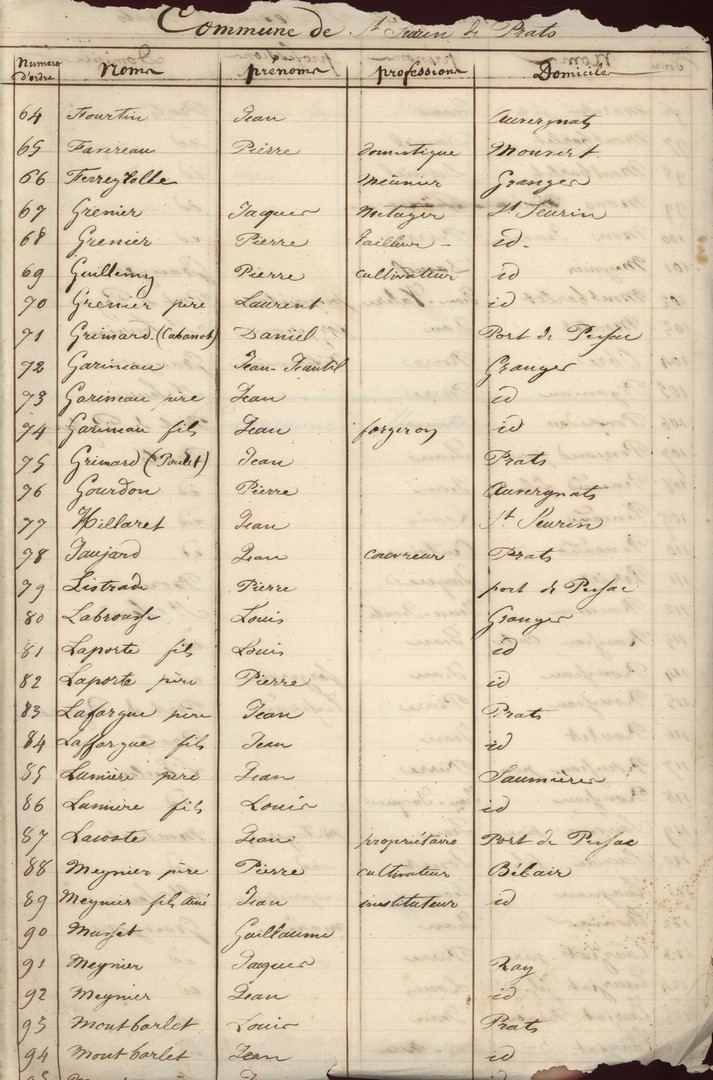 Commune de St Seurin de Prats
Numero d'ordre Noms prénoms professions Domicile
64 Fourtin Jean Auvergnats
65 Favereau Pierre domestique Mouvert
66 Ferreyrolle meunier Granger
67 Grenier Jaques Metayer St Seurin
68 Grenier Pierre tailleur - id.
69 Guillemy Pierre cultivateur id
70 Grenier père Laurent id
71 Grimard (Cabanot) Daniel Port de Pessac
72 Garineau Jean- Granger
73 Garineau père Jean id
74 Garineau fils Jean forgeron id
75 Grimard (Poulet) Jean Prats
76 Gourdon Pierre Auvergnats
77 Hillaret Jean St Seurin
78 Jaujard Jean couvreur Prats
79 Listrade Pierre port de Pessac
80 Labrousse Louis Granger
81 Laporte fils Louis id
82 Laporte père Pierre id
83 Lafargue père Jean Prats
84 Laffargue fils Jean id
85 Lumière père Jean Saumières
86 Lumière fils Louis id
87 Lacoste Jean propriétaire Port de Pessac
88 Meynier père Pierre cultivateur Bélair
89 Meynier fils ainé Jean instituteur id
90 Musset Guillaume
91 Meynier Jaques Ray
92 Meynier Jean id
93 Montbarlet Louis Prats
94 Montbarlet Jean id